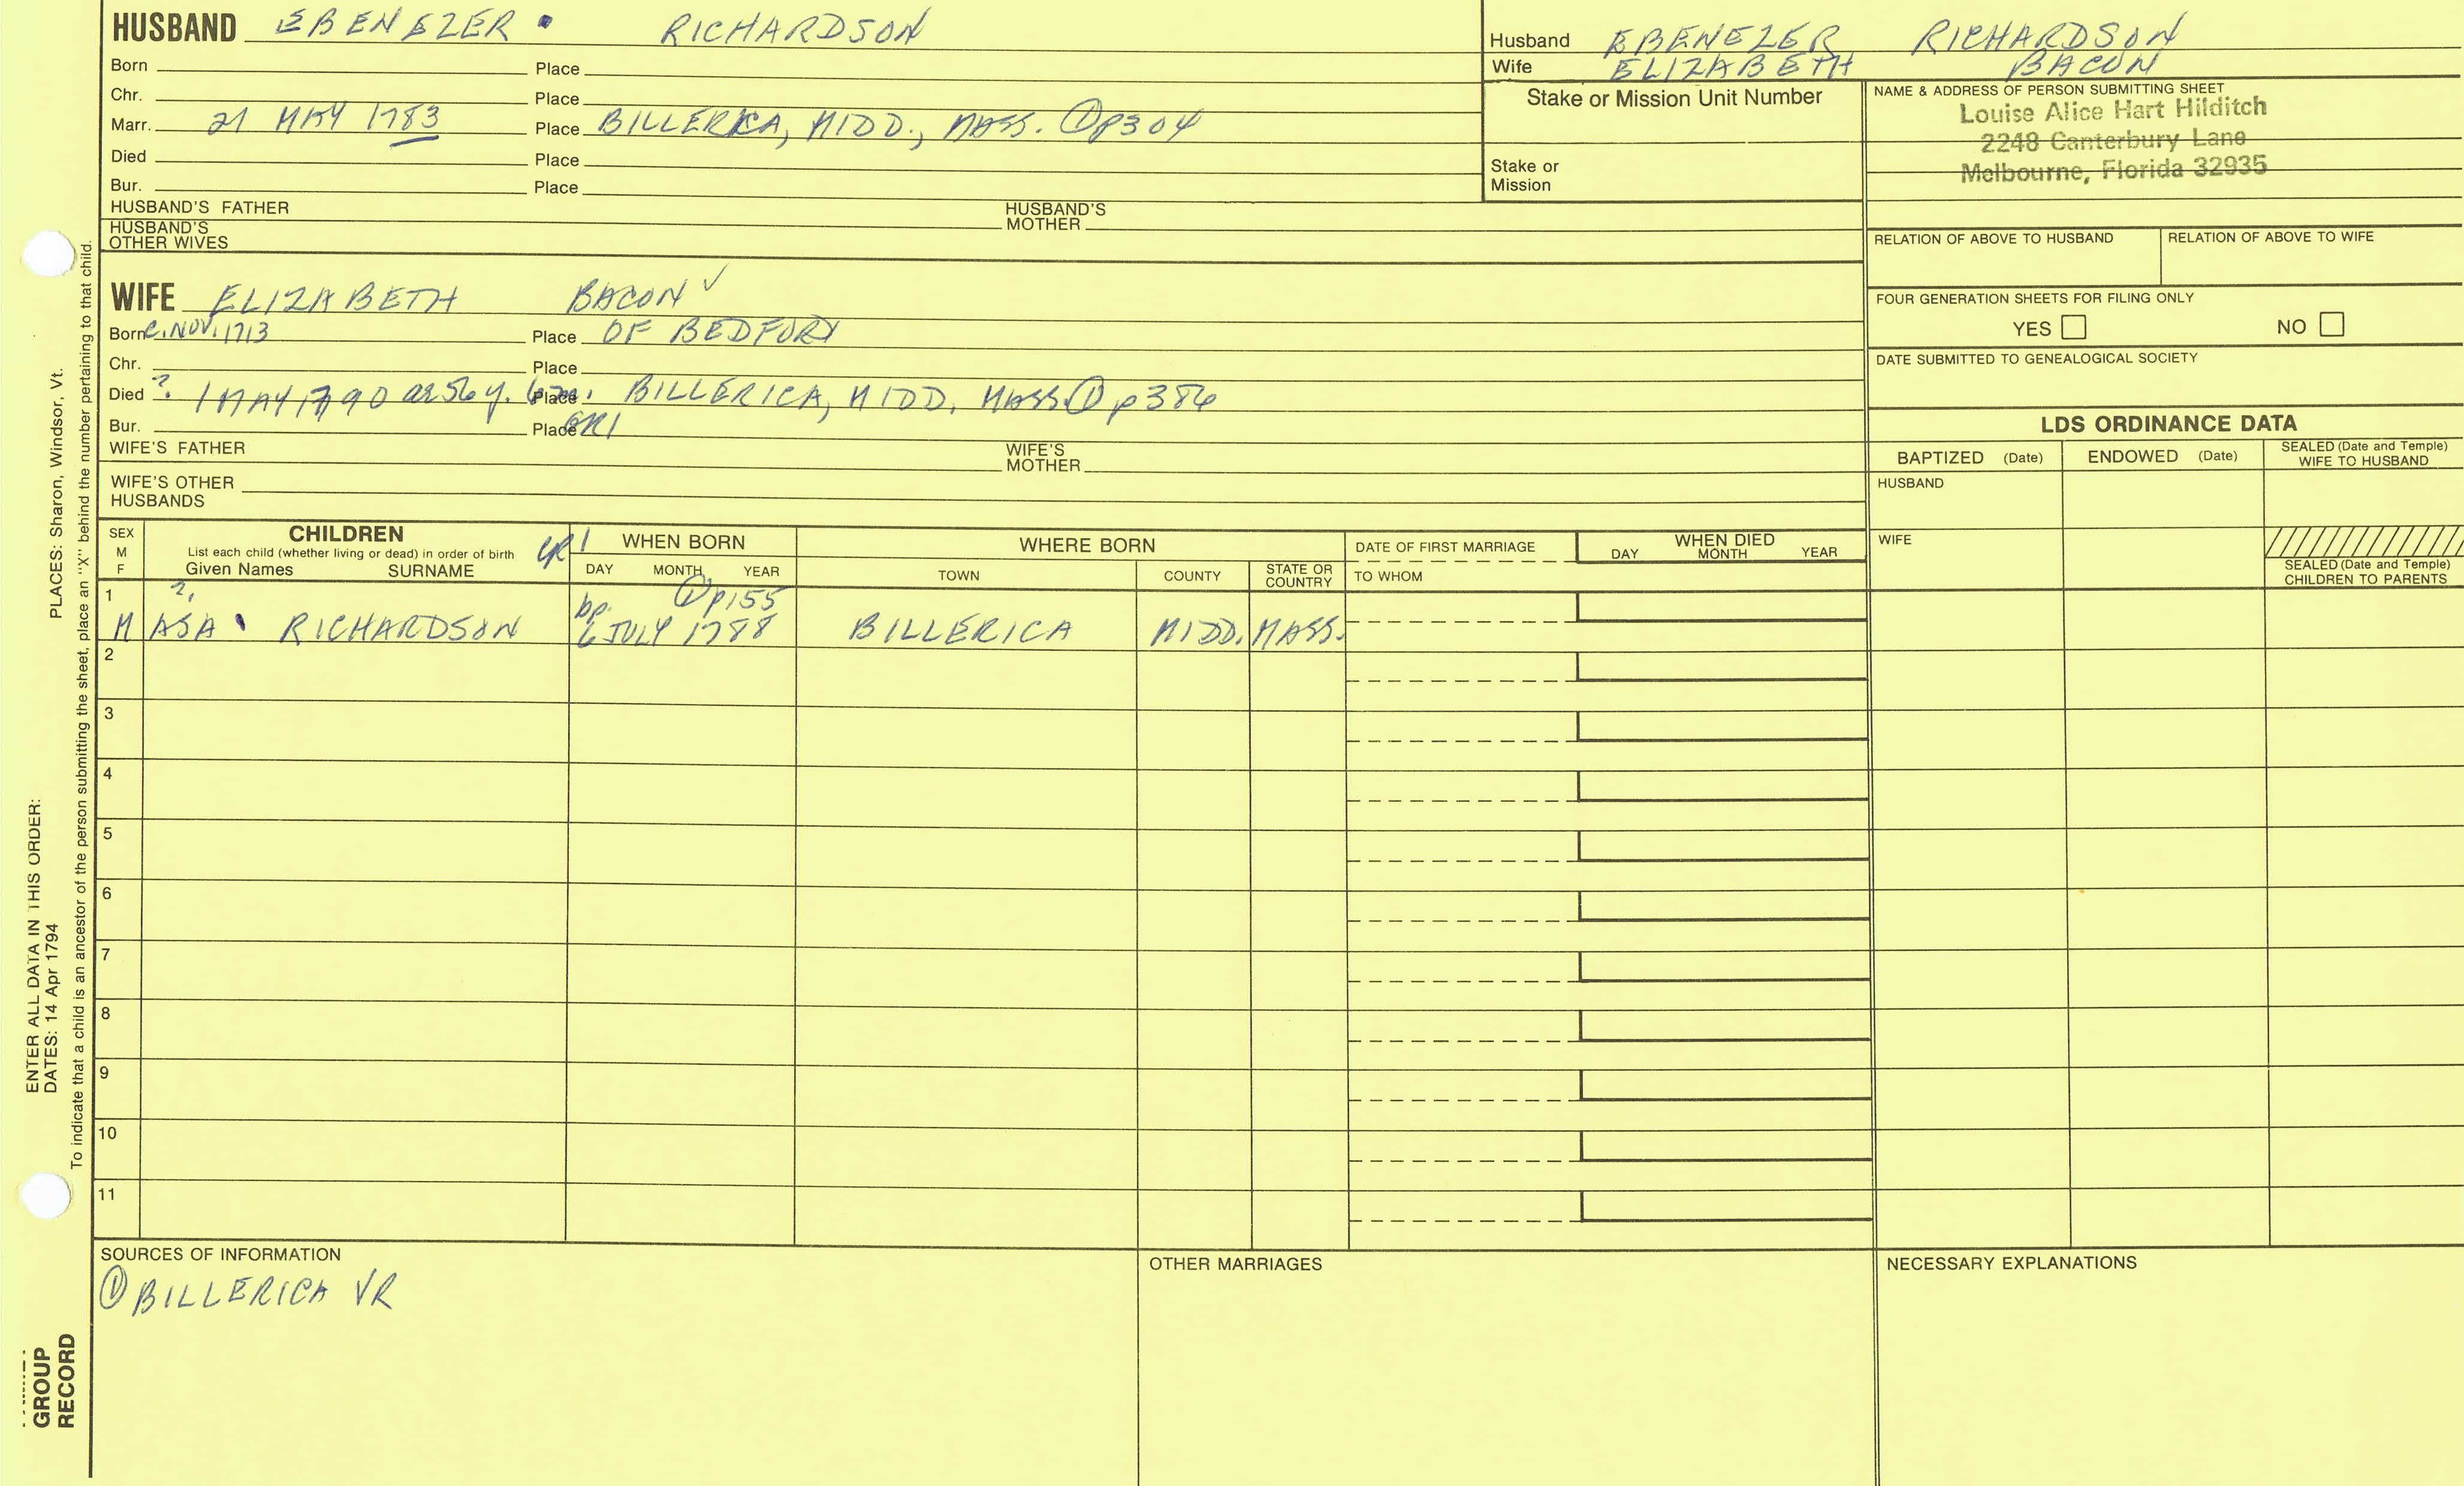 HUSBAND EBENEZER RICHARDSON
Born Place
Chr. Place
Marr. 21 MAY 1783 Place BILLERICA, MIDD., MASS. ① p304
Died Place
Bur. Place
HUSBAND'S FATHER HUSBAND'S MOTHER
HUSBAND'S OTHER WIVES
Husband EBENEZER RICHARDSON
Wife ELIZABETH BACON
Stake or Mission Unit Number
Stake or Mission
NAME & ADDRESS OF PERSON SUBMITTING SHEET
Louise Alice Hart Hilditch
2248 Canterbury Lane
Melbourne, Florida 32935
RELATION OF ABOVE TO HUSBAND RELATION OF ABOVE TO WIFE
FOUR GENERATION SHEETS FOR FILING ONLY
YES NO
DATE SUBMITTED TO GENEALOGICAL SOCIETY
WIFE ELIZABETH BACON ✓
Born C. NOV. 1713 Place OF BEDFORD
Chr. Place
Died ? 1 MAY 1790 ae 56 y. 6 m. Place BILLERICA, MIDD, MASS ① p386
Bur. Place GR1
WIFE'S FATHER WIFE'S MOTHER
WIFE'S OTHER HUSBANDS
LDS ORDINANCE DATA
BAPTIZED (Date) ENDOWED (Date) SEALED (Date and Temple) WIFE TO HUSBAND
HUSBAND
WIFE
SEALED (Date and Temple) CHILDREN TO PARENTS
SEX M F
CHILDREN
List each child (whether living or dead) in order of birth
Given Names SURNAME
WHEN BORN
DAY MONTH YEAR
WHERE BORN
TOWN COUNTY STATE OR COUNTRY
DATE OF FIRST MARRIAGE
TO WHOM
WHEN DIED
DAY MONTH YEAR
1 ? bp. ① p155
M ASA RICHARDSON 6 JULY 1788 BILLERICA MIDD. MASS.
2
3
4
5
6
7
8
9
10
11
SOURCES OF INFORMATION
① BILLERICA VR
OTHER MARRIAGES
NECESSARY EXPLANATIONS
ENTER ALL DATA IN THIS ORDER:
DATES: 14 Apr 1794 PLACES: Sharon, Windsor, Vt.
To indicate that a child is an ancestor of the person submitting the sheet, place an "X" behind the number pertaining to that child.
GROUP
RECORD